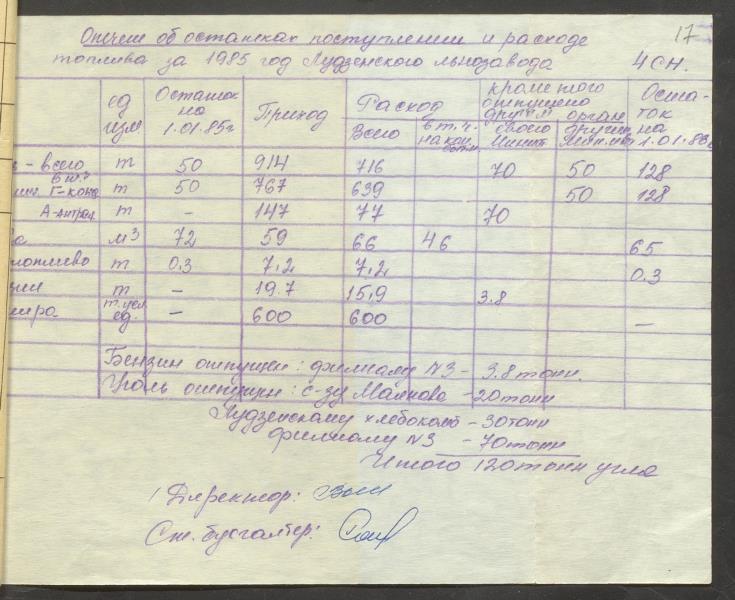 17
Отчет об остатках поступлении и расходе
топлива за 1985 год Лудзенского льнозавода 4 СН.
ед изм Остаток на 1.01.85г Приход Расход Всего в т.ч. на кроме того отпущено другим своего орган. других Оста-ток на 1.01.86
- всего т 50 914 716 70 50 128
в т.ч. Г-кон т 50 767 639 50 128
А-антрац т - 147 77 70
м³ 72 59 66 46 65
топливо т 0.3 7,2 7,2 0.3
т - 19.7 15,9 3.8
т.усл. ед. - 600 600 -
Бензин отпущен: филиалу N3 - 3.8 тонн.
Уголь отпущен: с-зу Маяково - 20 тонн
Лудзенскому хлебокомб - 30 тонн
филиалу N3 - 70 тонн
Итого 120 тонн угля
Директор:
Ст. бухгалтер: